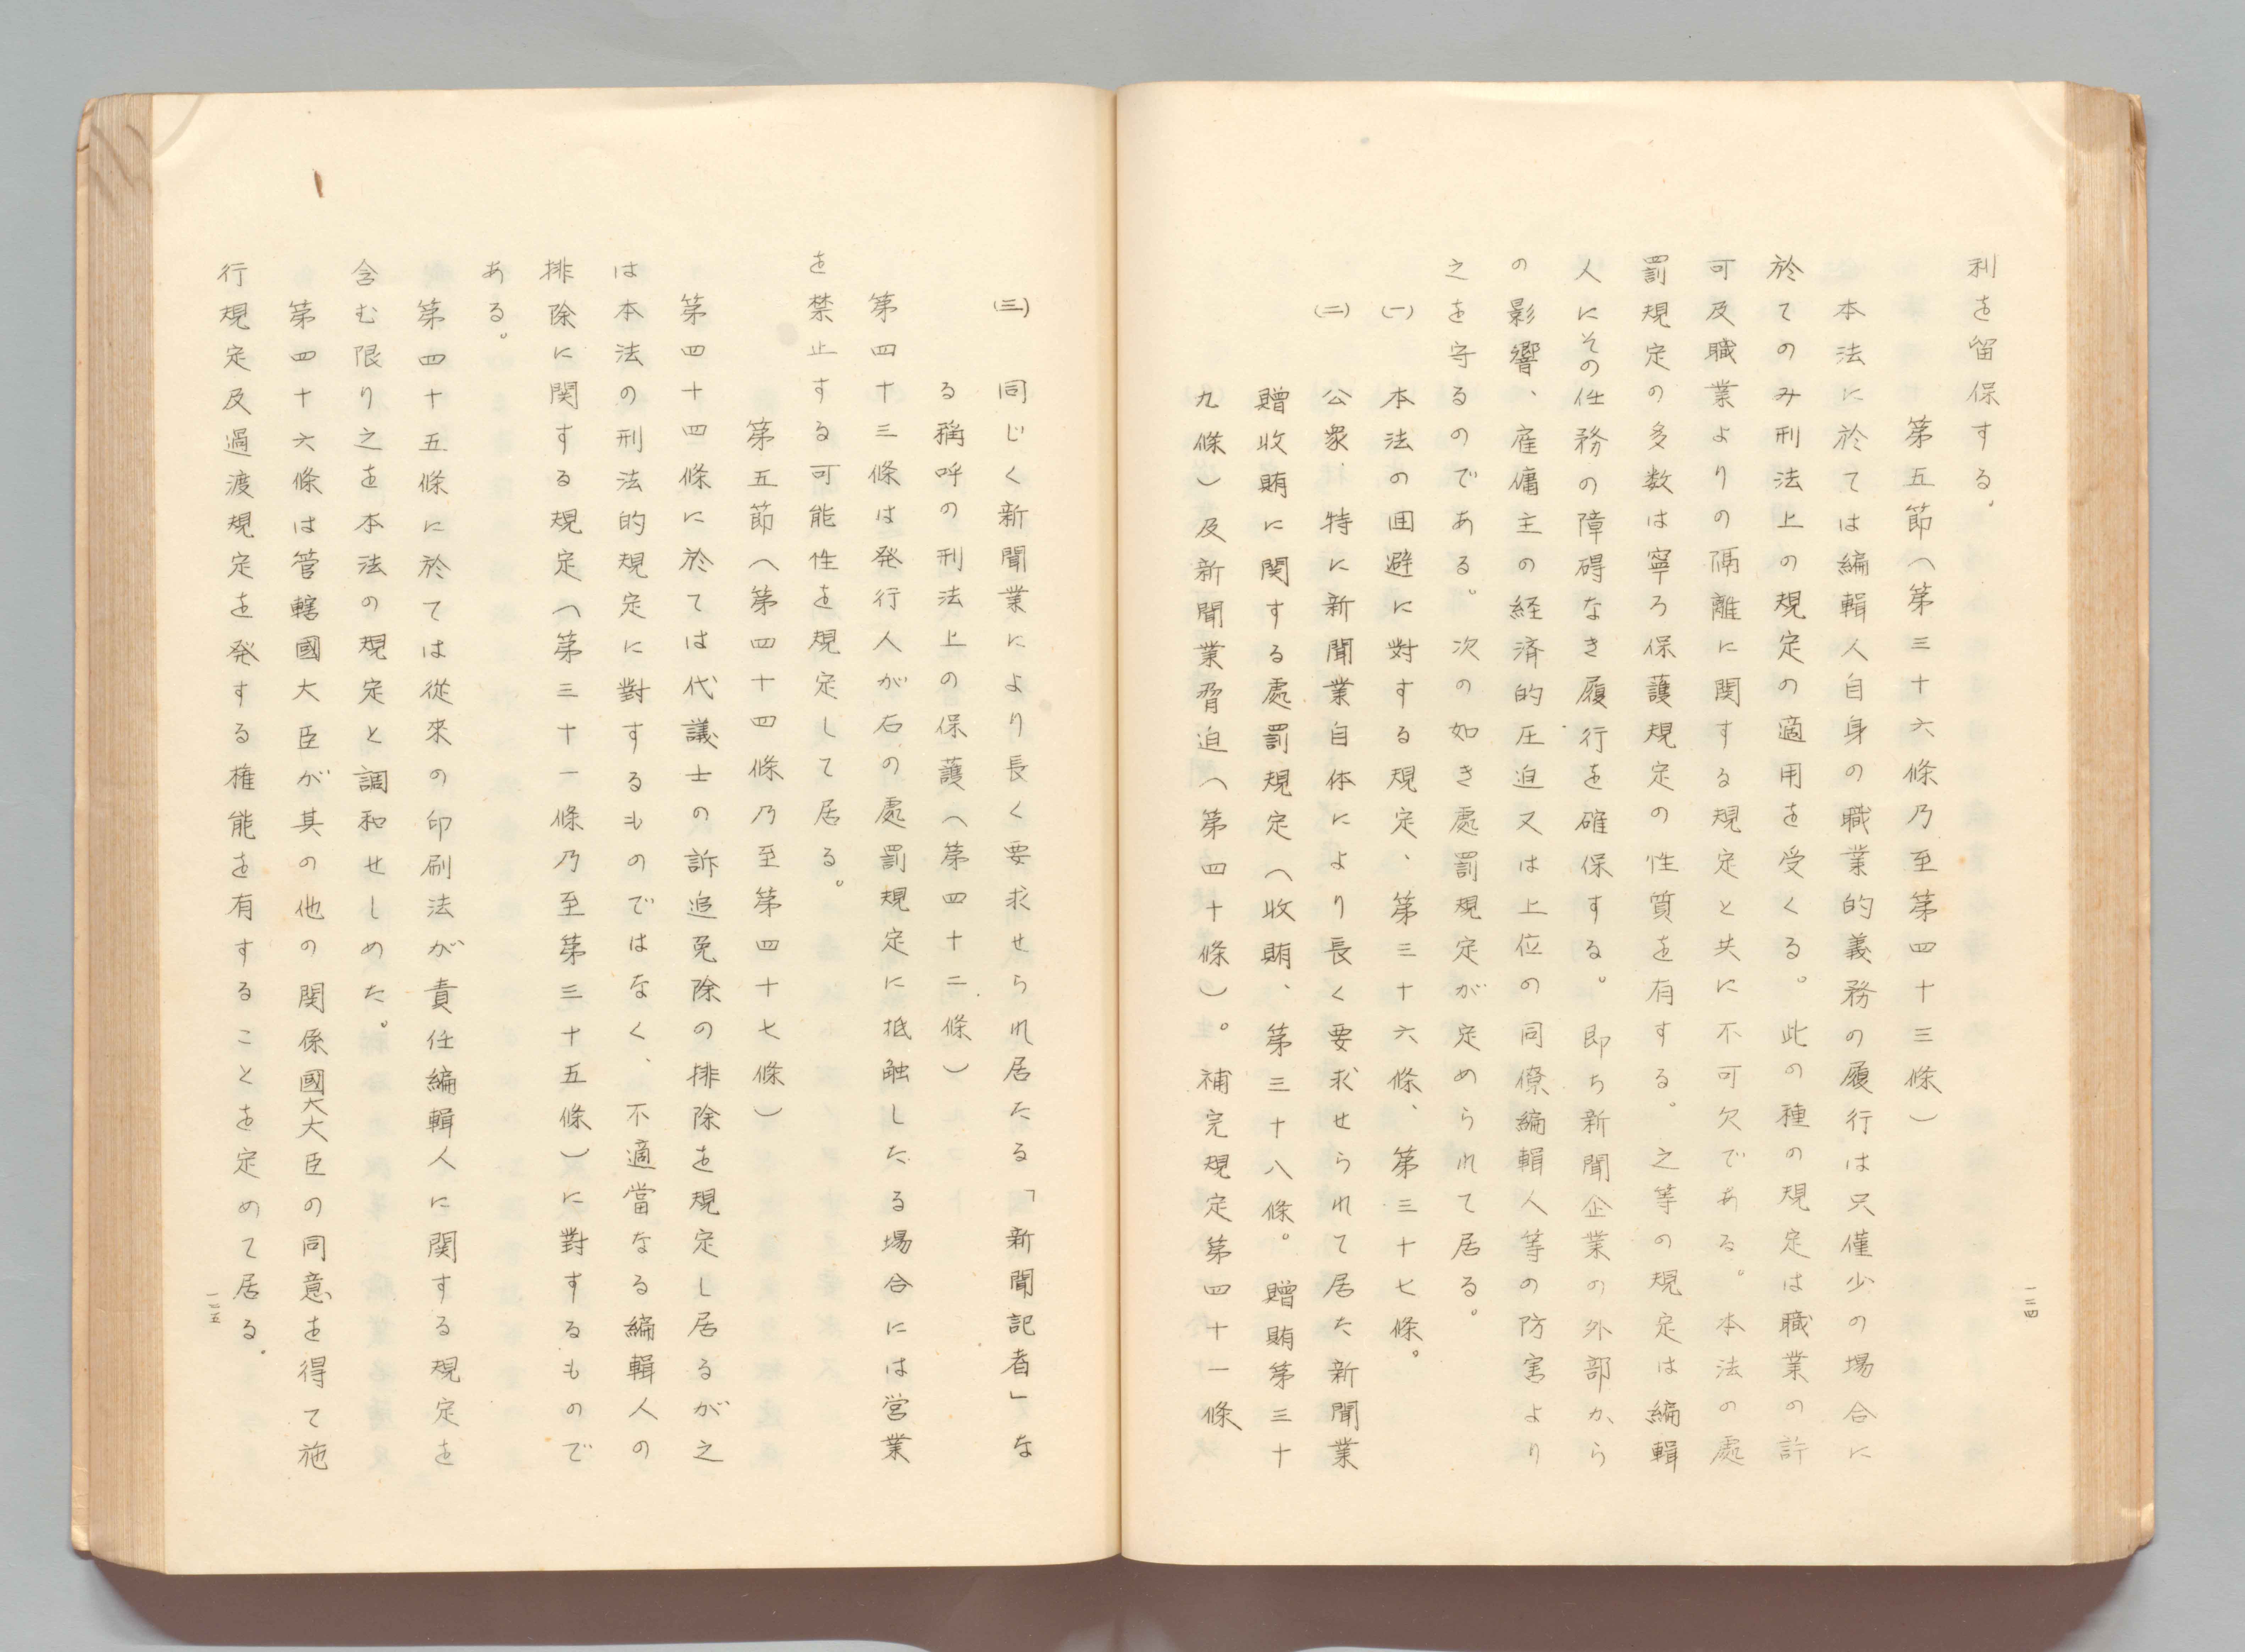 利を留保する。
第五節（第三十六條乃至第四十三條）
本法に於ては編輯人自身の職業的義務の履行は只僅少の場合に
於てのみ刑法上の規定の適用を受くる。此の種の規定は職業の許
可及職業よりの隔離に関する規定と共に不可欠である。本法の處
罰規定の多数は寧ろ保護規定の性質を有する。之等の規定は編輯
人にその任務の障碍なき履行を確保する。即ち新聞企業の外部から
の影響、雇傭主の経済的圧迫又は上位の同僚編輯人等の防害より
之を守るのである。次の如き處罰規定が定められて居る。
(一) 本法の囬避に對する規定、第三十六條、第三十七條。
(二) 公衆、特に新聞業自体により長く要求せられて居た新聞業
贈收賄に関する處罰規定（收賄、第三十八條。贈賄第三十
九條）及新聞業脅迫（第四十條）。補完規定第四十一條
一二四
(三) 同じく新聞業により長く要求せられ居たる「新聞記者」な
る稱呼の刑法上の保護（第四十二條）
第四十三條は発行人が右の處罰規定に抵触したる場合には営業
を禁止する可能性を規定して居る。
第五節（第四十四條乃至第四十七條）
第四十四條に於ては代議士の訴追免除の排除を規定し居るが之
は本法の刑法的規定に對するものではなく、不適當なる編輯人の
排除に関する規定（第三十一條乃至第三十五條）に對するもので
ある。
第四十五條に於ては從来の印刷法が責任編輯人に関する規定を
含む限り之を本法の規定と調和せしめた。
第四十六條は管轄國大臣が其の他の関係國大大臣の同意を得て施
行規定及過渡規定を発する権能を有することを定めて居る。
一二五